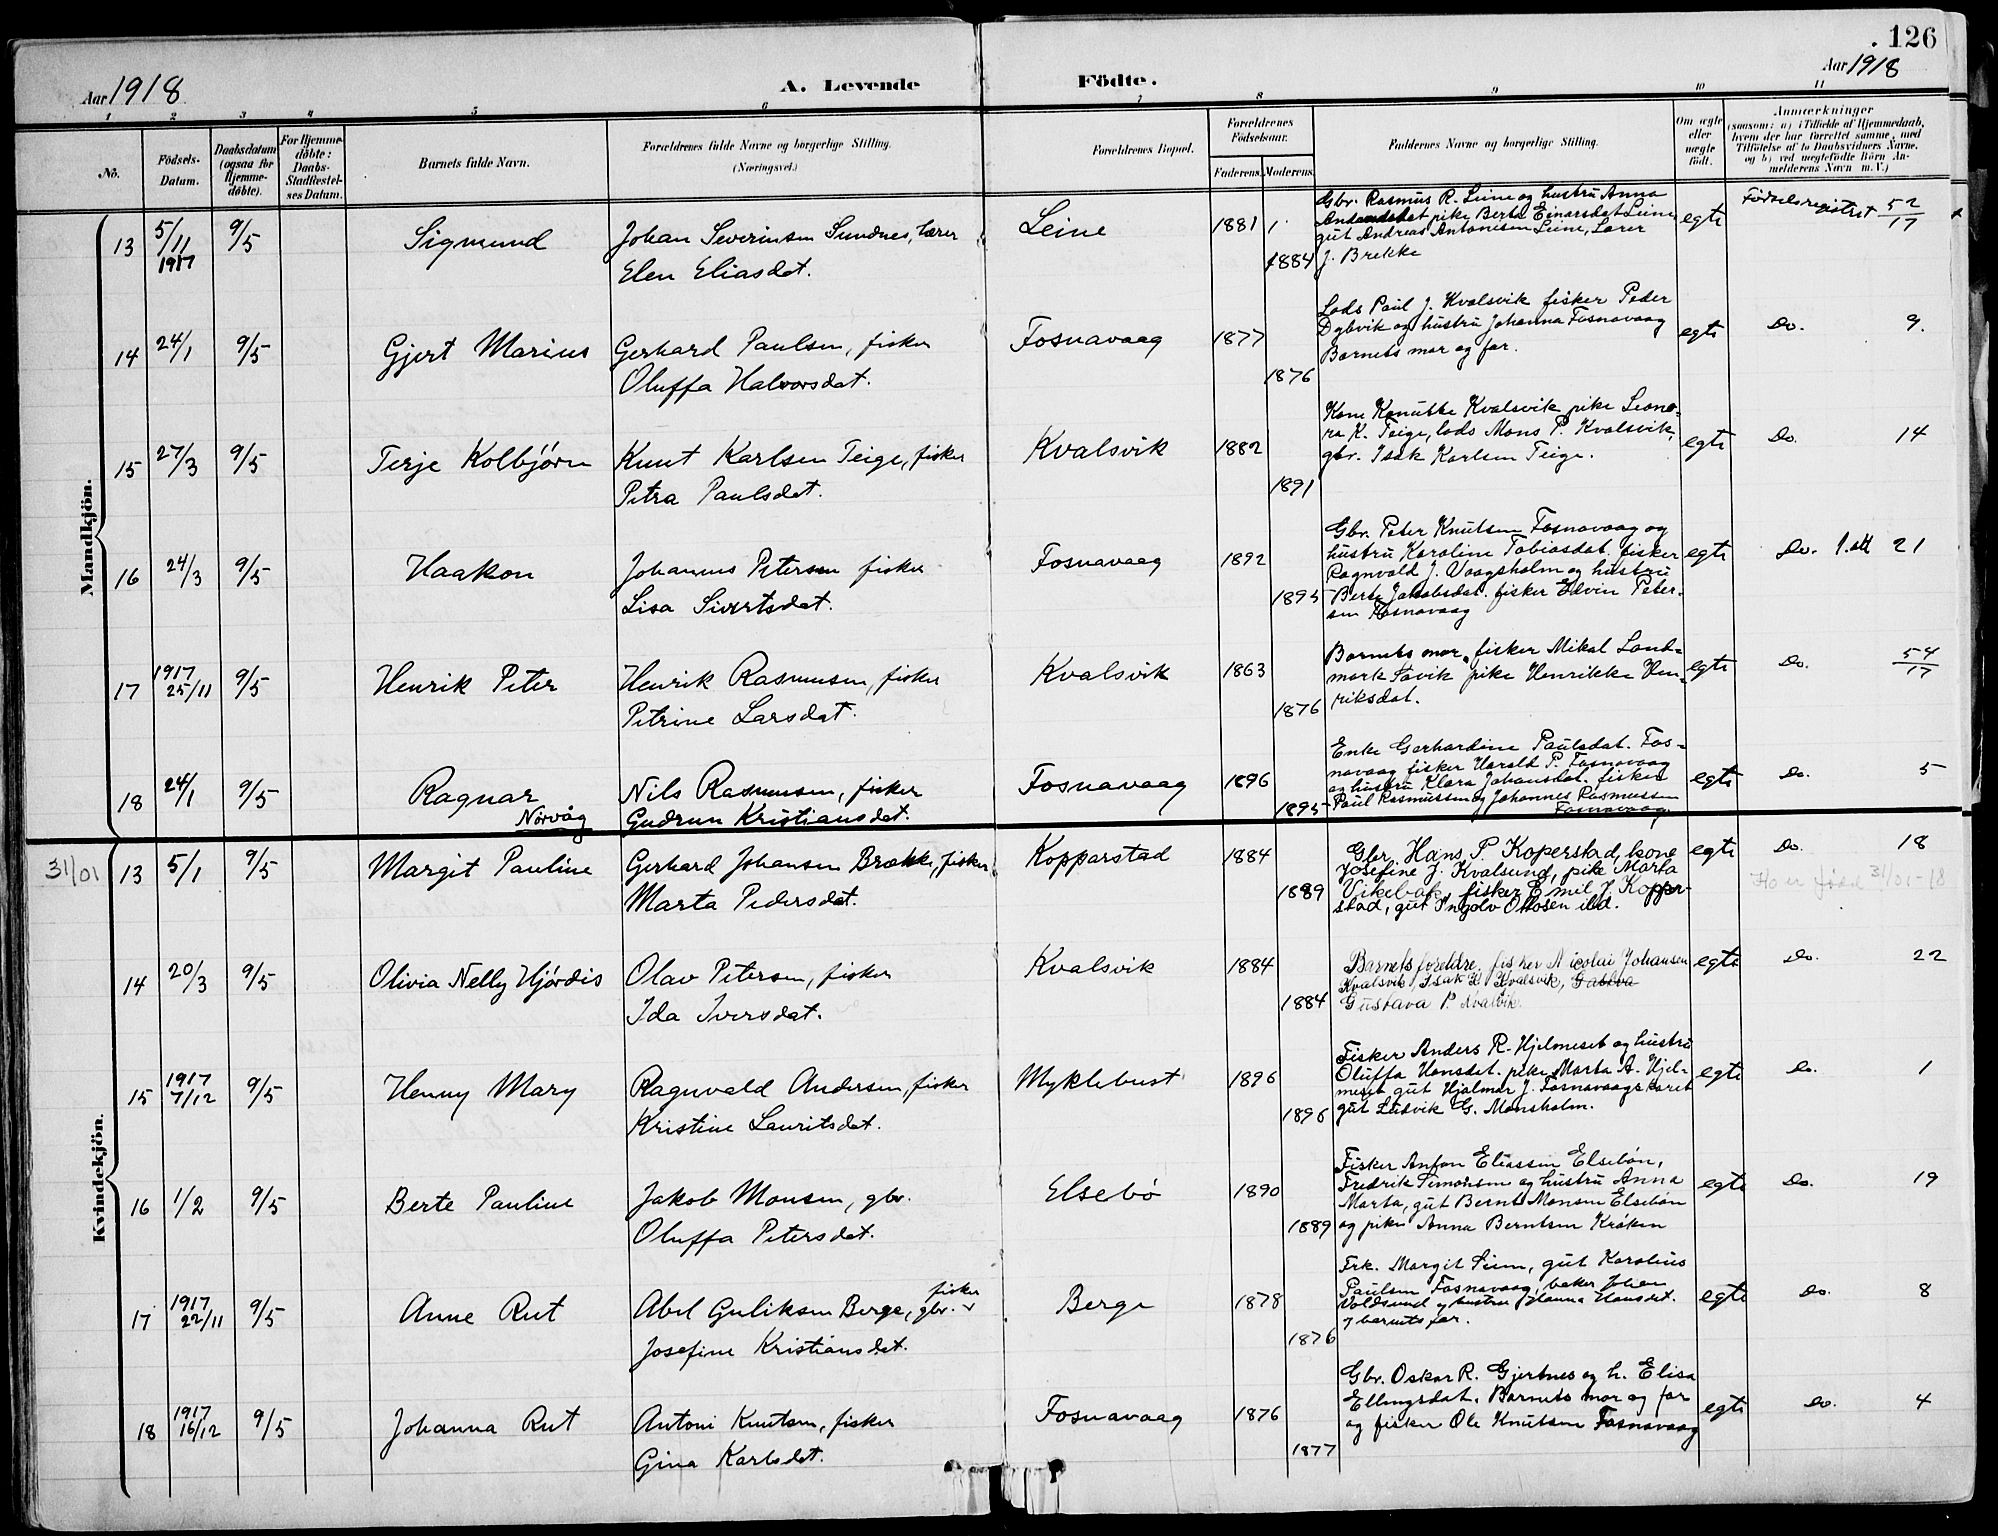 126
Aar 1918
A. Levende Födte.
Aar 1918
1 2 3 4 5 6 7 8 9 10 11
No.
Födsels-Datum.
Daabsdatum (ogsaa for Hjemme-döbte).
For Hjemme-döbte: Daabs-Stadfæstel-ses Datum.
Barnets fulde Navn.
Forældrenes fulde Navne og borgerlige Stilling.
(Næringsvei.)
Forældrenes Bopæl.
Forældrenes Födselsaar.
Faderens. Moderens.
Faddernes Navne og borgerlige Stilling.
Om ægte eller uægte födt.
Anmærkninger
(saasom: a) i Tilfælde af Hjemmedaab,
hvem der har forrettet samme, med
Tilföielse af to Daabsvidners Navne,
og b) ved uægtefödte Börn An-
melderens Navn m.V.)
Mandkjön.
13 5/11 1917 9/5 Sigmund
Johan Severinsen Sundnes, lærer
Elen Eliasdat.
Leine 1881 1884
Gbr. Rasmus R. Leine og hustru Anna
pike Berta Einarsdat Leine
gut Andreas Antonisen Leine, Lærer
J. Brekke
egte Födselsregistret 52/17
14 24/1 9/5 Gjert Marius
Gerhard Paulsen, fisker
Oluffa Halvorsdat.
Fosnavaag 1877 1876
Lods Paul J. Kvalsvik fisker Peder
Dybvik og hustru Johanna Fosnavaag
Barnets mor og far.
egte Do. 9.
15 27/3 9/5 Terje Kolbjörn
Knut Karlsen Teige, fisker
Petra Paulsdat.
Kvalsvik 1882 1891
Kone Knutte Kvalsvik pike Leono-
ra K. Teige, lods Mons P. Kvalsvik,
gbr. Isak Karlsen Teige.
egte Do. 14
16 24/3 9/5 Haakon
Johannes Petersen fisker
Lisa Sivertsdat.
Fosnavaag 1892 1895
Gbr. Peter Knutsen Fosnavaag og
hustru Karoline Tobiasdat. fisker
Ragnvald J. Vaagsholm og hustru
Berte Jakobsdat. fisker Edvin Peter-
sen Fosnavaag
egte Do. 21
17 1917 25/11 9/5 Henrik Peter
Henrik Rasmussen, fisker
Petrine Larsdat.
Kvalsvik 1863 1876
Barnets mor, fisker Mikal Land-
mark Tovik pike Henrikke Hen-
riksdat.
egte Do. 54/17
18 24/1 9/5 Ragnar
Norvåg
Nils Rasmussen, fisker
Gudrun Kristiansdat.
Fosnavaag 1896 1895
Enke Gerhardine Paulsdat. Fos-
navaag fisker Harald P. Fosnavaag
og hustru Klara Johansdat. fisker
Paul Rasmussen og Johannes Rasmussen
Fosnavaag
egte Do. 5
Kvindekjön.
31/01 13 5/1 9/5 Margit Pauline
Gerhard Johansen Brække, fisker
Marta Pedersdat.
Kopparstad 1884 1889
Gbr. Hans P. Koperstad, kone
Josefine J. Kvalsund, pike Marta
Vikebak, fisker Emil J. Koppar-
stad, gut Ingolv Ottosen ibd.
egte Do. 18
Ho er fødd 31/01-18
14 20/3 9/5 Olivia Nelly Hjördis
Olav Petersen, fisker
Ida Iversdat.
Kvalsvik 1884 1884
Barnets foreldre, fisker Nicolai Johansen
Kvalsvik, Isak K. Kvalsvik,
Gustava P. Kvalsvik.
egte Do. 22
15 1917 7/12 9/5 Henny Mary
Ragnvald Andersen, fisker
Kristine Lauritsdat.
Myklebust 1896 1896
Fisker Anders R. Hjelmeset og hustru
Oluffa Hansdat. pike Marta A. Hjel-
meset gut Hjalmar J. Fosnavaagskaret
gut Ludvik G. Monsholm.
egte Do. 1
16 1/2 9/5 Berte Pauline
Jakob Monsen, gbr.
Oluffa Petersdat.
Elsebö 1890 1889
Fisker Anton Eliassen Elsebön,
Fredrik Simonsen og hustru Anna
Marta, gut Bernt Monsen Elsebön
og pike Anna Berntsen Kröken
egte Do. 19
17 1917 22/11 9/5 Anne Rut
Abel Guliksen Berge, gbr. fisker
Josefine Kristiansdat.
Berge 1878 1876
Frk. Margit Seim, gut Karolius
Paulsen Fosnavaag, baker Johan
Voldsund og hustru Johanna Hansdat.
og barnets far.
egte Do. 8
18 1917 16/12 9/5 Johanna Rut
Antoni Knutsen, fisker
Gina Karlsdat.
Fosnavaag 1876 1877
Gbr. Oskar R. Gjertnes og h. Elisa
Ellingsdat. Barnets mor og far
og fisker Ole Knutsen Fosnavaag
egte Do. 4